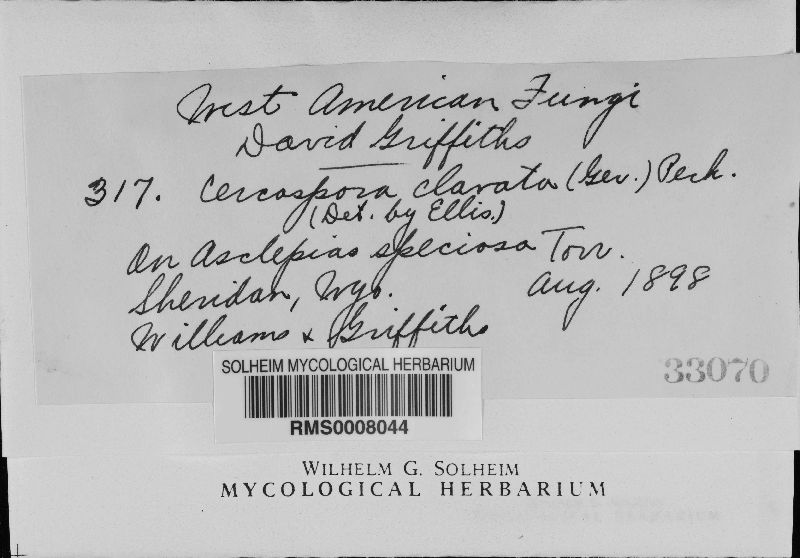 West American Fungi
David Griffiths
317. Cercospora clavata (Ger.) Peck.
(Det. by Ellis.)
On Asclepias speciosa Torr.
Sheridan, Wyo. Aug. 1898
Williams & Griffiths
SOLHEIM MYCOLOGICAL HERBARIUM
RMS0008044
33070
WILHELM G. SOLHEIM
MYCOLOGICAL HERBARIUM